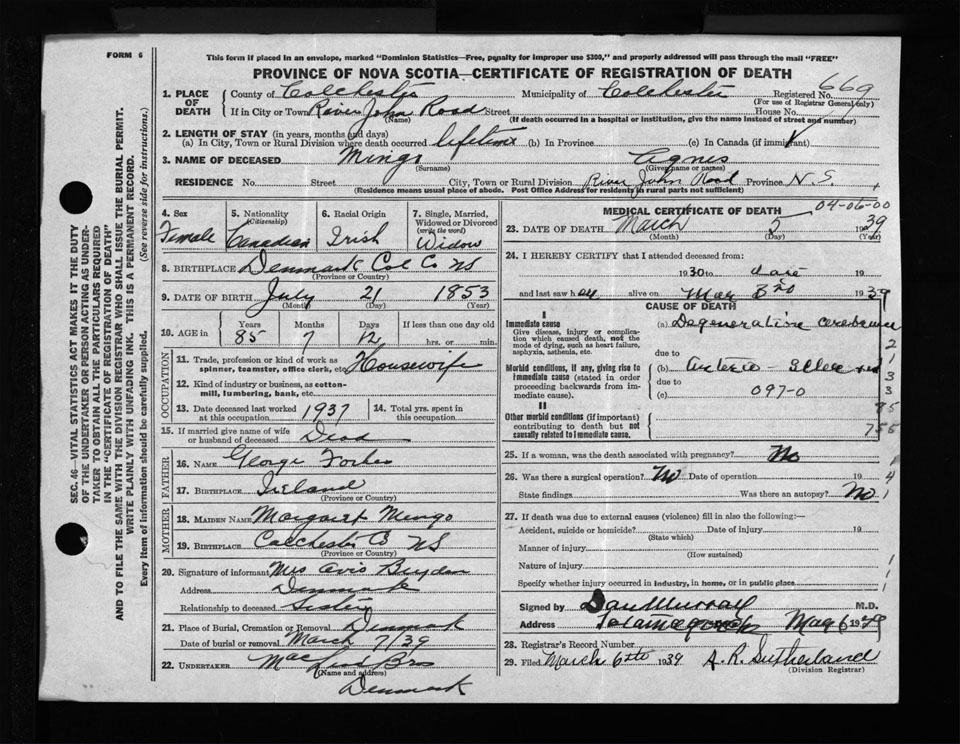 FORM 6
This form if placed in an envelope, marked "Dominion Statistics—Free, penalty for improper use $300," and properly addressed will pass through the mail "FREE"
PROVINCE OF NOVA SCOTIA—CERTIFICATE OF REGISTRATION OF DEATH
1. PLACE OF DEATH
County of Colchester Municipality of Colchester Registered No. 669
(For use of Registrar General only)
If in City or Town River John Road Street House No.
(Name) (If death occurred in a hospital or institution, give its name instead of street and number)
2. LENGTH OF STAY (in years, months and days)
(a) In City, Town or Rural Division where death occurred lifetime (b) In Province (c) In Canada (if immigrant)
3. NAME OF DECEASED Mingo Agnes
(Surname) (Given name or names)
RESIDENCE No. Street City, Town or Rural Division River John Road Province N.S.
(Residence means usual place of abode. Post Office Address for residents in rural parts not sufficient)
4. Sex Female
5. Nationality (Citizenship) Canadian
6. Racial Origin Irish
7. Single, Married, Widowed or Divorced (write the word) Widow
8. BIRTHPLACE Denmark Col Co NS
(Province or Country)
9. DATE OF BIRTH July 21 1853
(Month) (Day) (Year)
10. AGE in Years Months Days If less than one day
85 7 12 hrs. or min.
OCCUPATION
11. Trade, profession or kind of work as spinner, teamster, office clerk, etc. Housewife
12. Kind of industry or business, as cotton-mill, lumbering, bank, etc.
13. Date deceased last worked at this occupation 1937
14. Total yrs. spent in this occupation
15. If married give name of wife or husband of deceased Dead
FATHER
16. NAME George Forbes
17. BIRTHPLACE Ireland
(Province or Country)
MOTHER
18. MAIDEN NAME Margaret Mingo
19. BIRTHPLACE Colchester Co NS
(Province or Country)
20. Signature of informant Mrs Avis
Address Denmark
Relationship to deceased Sister
21. Place of Burial, Cremation or Removal Denmark
Date of burial or removal March 7/39
22. UNDERTAKER Bros
(Name and address)
Denmark
MEDICAL CERTIFICATE OF DEATH
04-06-00
23. DATE OF DEATH March 5 1939
(Month) (Day) (Year)
24. I HEREBY CERTIFY that I attended deceased from:
1930 to date 19
and last saw her alive on Mar 3rd 1939
CAUSE OF DEATH
I
Immediate cause
Give disease, injury or complication which caused death, not the mode of dying, such as heart failure, asphyxia, asthenia, etc.
(a) Degenerative
due to
Morbid conditions, if any, giving rise to immediate cause (stated in order proceeding backwards from immediate cause).
(b)
due to
(c) 097-0
II
Other morbid conditions (if important) contributing to death but not causally related to immediate cause.
2
1
3
3
85
755
25. If a woman, was the death associated with pregnancy? No
26. Was there a surgical operation? No Date of operation 19
State findings Was there an autopsy? No
27. If death was due to external causes (violence) fill in also the following:—
Accident, suicide or homicide? Date of injury 19
(State which)
Manner of injury
(How sustained)
Nature of injury
Specify whether injury occurred in industry, in home, or in public place
Signed by Dan Murray M.D.
Address Tatamagouche
28. Registrar's Record Number
29. Filed March 6th 1939 A.R. Sutherland
(Division Registrar)
SEC. 46—VITAL STATISTICS ACT MAKES IT THE DUTY
OF THE UNDERTAKER OR PERSON ACTING AS UNDER-
TAKER TO OBTAIN ALL THE PARTICULARS REQUIRED
IN THE "CERTIFICATE OF REGISTRATION OF DEATH"
AND TO FILE THE SAME WITH THE DIVISION REGISTRAR WHO SHALL ISSUE THE BURIAL PERMIT.
WRITE PLAINLY WITH UNFADING INK. THIS IS A PERMANENT RECORD.
Every item of information should be carefully supplied. (See reverse side for instructions.)